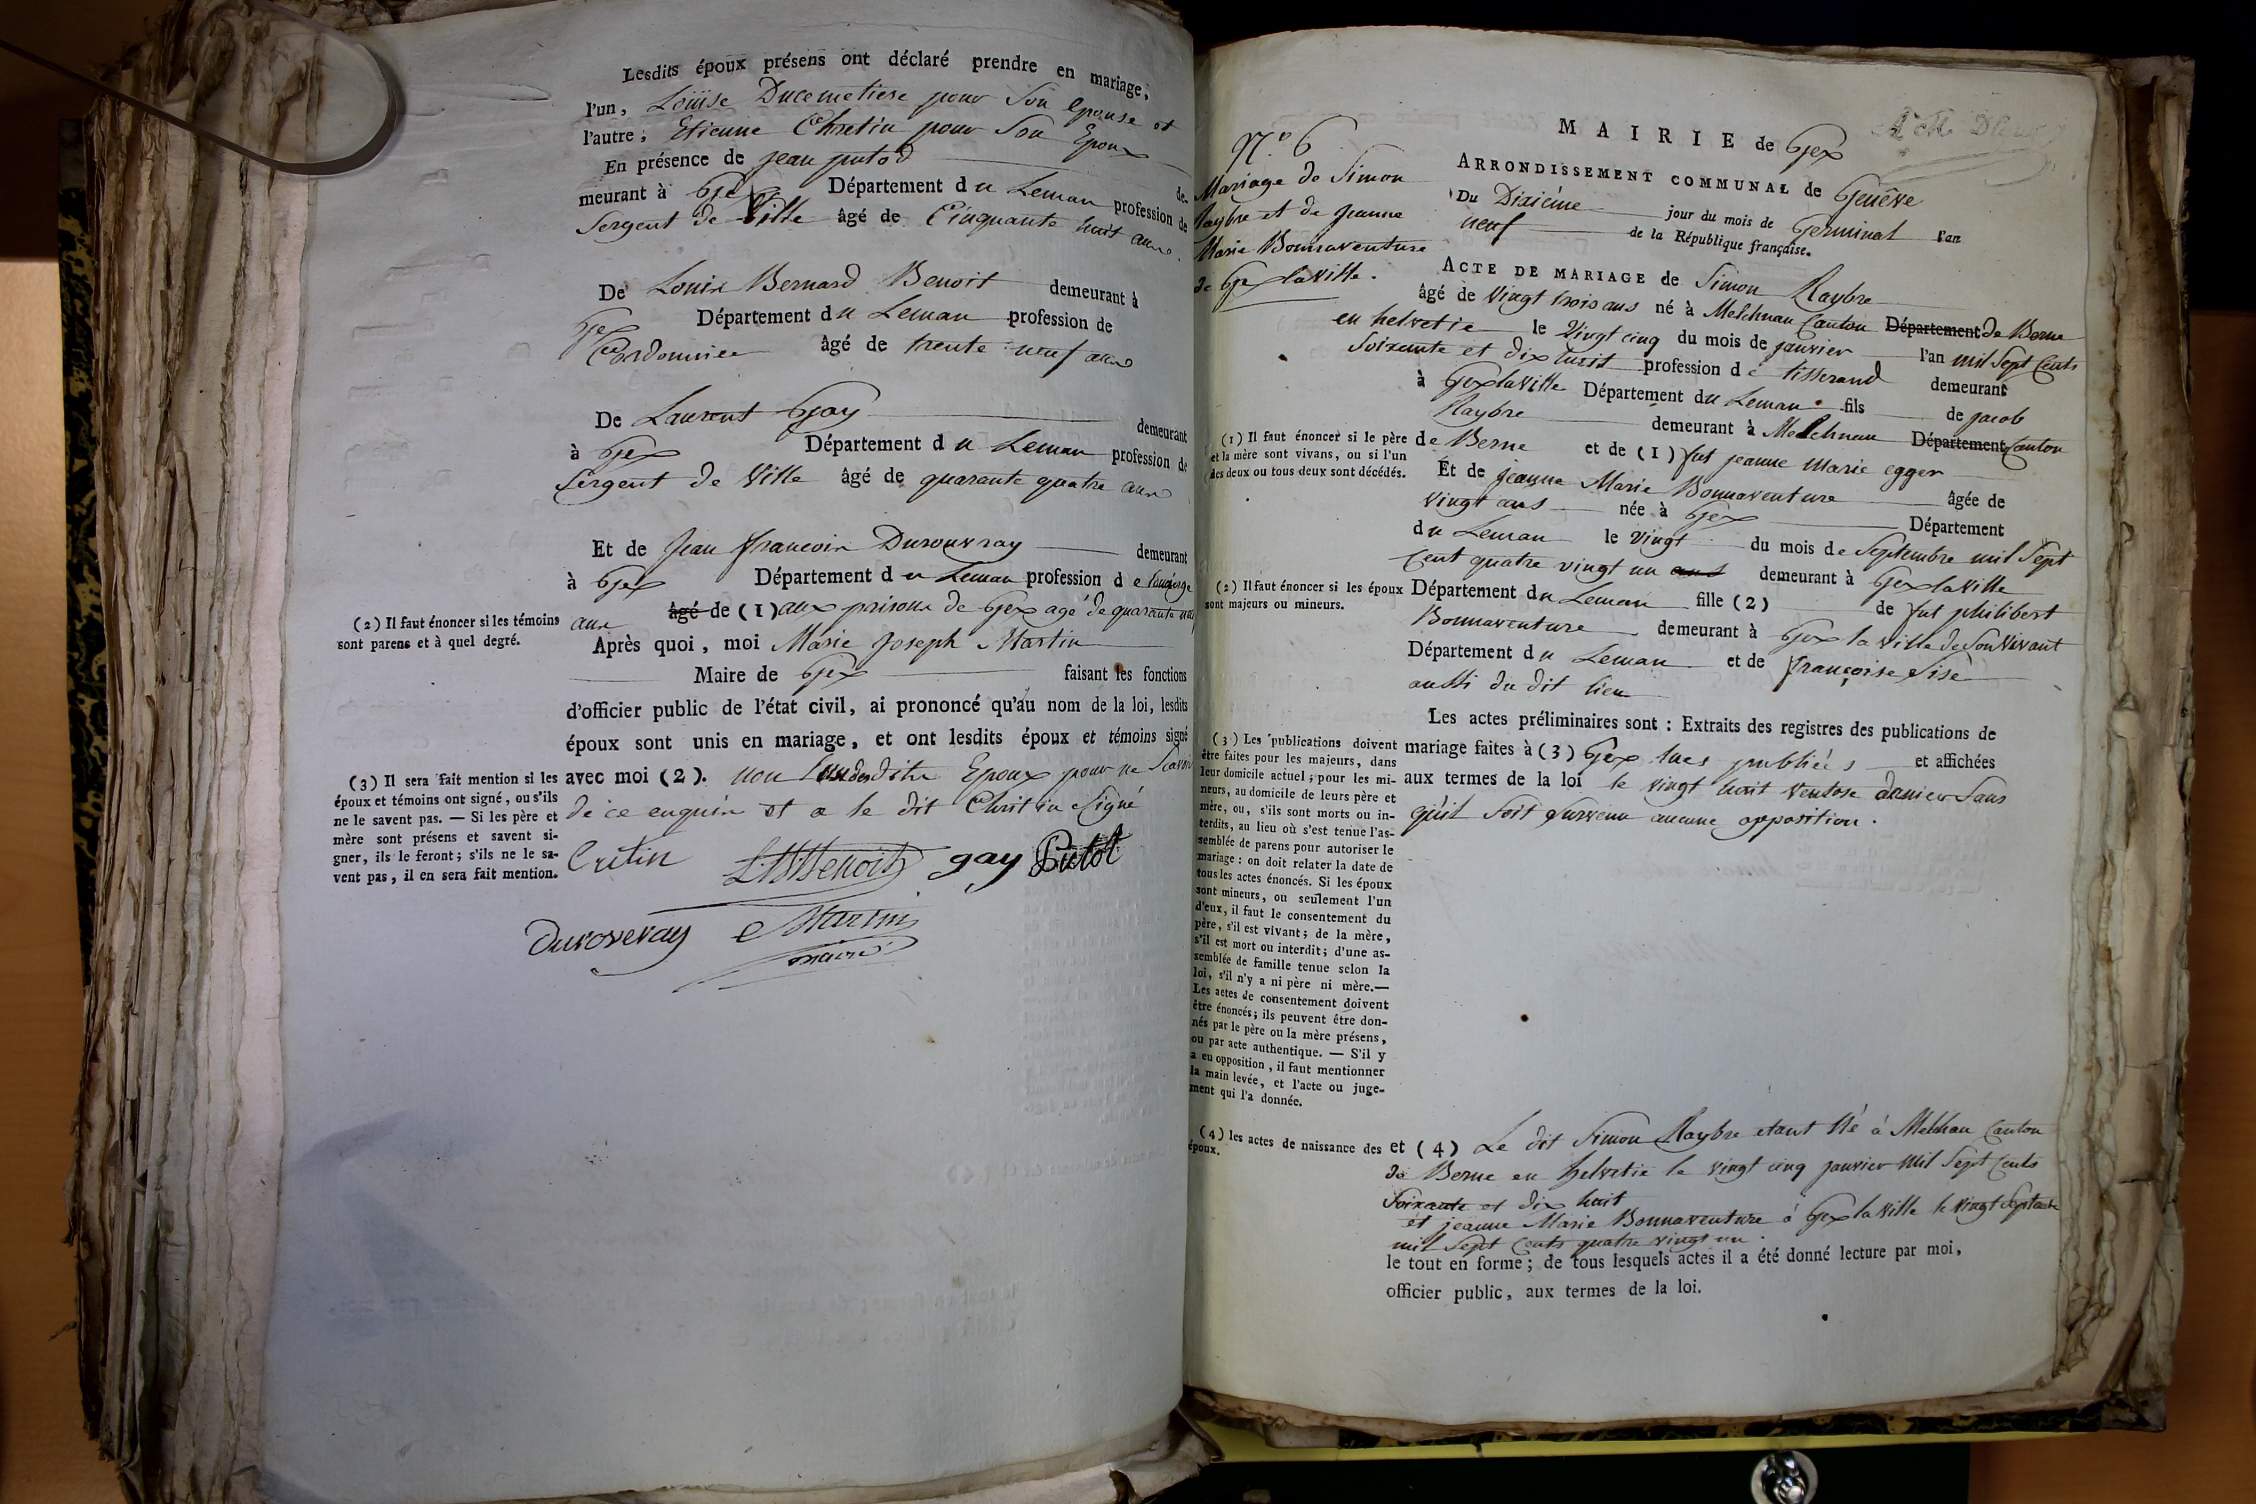 Lesdits époux présens ont déclaré prendre en mariage,
l'un, Loüise Ducemetiere pour Son Epouse et
l'autre, Etienne Chretin pour Son Epoux
En présence de jean putod de-
meurant à Gex Département du Leman profession de
Sergent de Ville âgé de Cinquante huit ans.
De Louis Bernard Benoit demeurant à
Gex Département du Leman profession de
Cordonnier âgé de trente neuf ans
De Laurent Gay demeurant
à Gex Département du Leman profession de
Sergent de Ville âgé de quarante quatre ans
Et de Jean françois Durouvray demeurant
à Gex Département du Leman profession de
âgé de (1) aux prisons de Gex agé de quarante
ans
(2) Il faut énoncer si les témoins
sont parens et à quel degré.
Après quoi, moi Marie Joseph Martin
Maire de Gex faisant les fonctions
d'officier public de l'état civil, ai prononcé qu'au nom de la loi, lesdits
époux sont unis en mariage, et ont lesdits époux et témoins signé
avec moi (2). non Epoux pour ne Savoir
de ce enquis et a le dit Chretin Signé
(3) Il sera fait mention si les
époux et témoins ont signé, ou s'ils
ne le savent pas. — Si les père et
mère sont présens et savent si-
gner, ils le feront; s'ils ne le sa-
vent pas, il en sera fait mention.
Cretin LBBenoit gay Putot
Duroveray Martin
maire
MAIRIE de Gex
ARRONDISSEMENT COMMUNAL de Genêve
Du Dixiéme jour du mois de Germinal l'an
neuf de la République française.
N.° 6
Mariage de Simon
Raybre et de Jeanne
Marie Bonnaventure
de Gex la Ville.
ACTE DE MARIAGE de Simon Raybre
âgé de Vingt trois ans né à Melchnau Canton Département de Berne
en helvetie le Vingt cinq du mois de janvier l'an mil Sept Cents
Soixante et dix huit profession de tisserand demeurant
à Gex la Ville Département du Leman fils de jacob
Raybre demeurant à Melchnau Département Canton
de Berne et de (1) fut jeanne Marie egger
Et de jeanne Marie Bonnaventure âgée de
Vingt ans née à Gex Département
du Leman le Vingt du mois de Septembre mil Sept
Cent quatre vingt un ans demeurant à Gex la Ville
Département du Leman fille (2) de fut philibert
Bonnaventure demeurant à Gex la Ville de Son Vivant
Département du Leman et de françoise Sisé
aussi du dit lieu
(1) Il faut énoncer si le père
et la mère sont vivans, ou si l'un
des deux ou tous deux sont décédés.
(2) Il faut énoncer si les époux
sont majeurs ou mineurs.
Les actes préliminaires sont : Extraits des registres des publications de
mariage faites à (3) Gex lues publiées et affichées
aux termes de la loi le vingt huit Ventose dernier Sans
qu'il Soit Survenu aucune opposition.
(3) Les publications doivent
être faites pour les majeurs, dans
leur domicile actuel; pour les mi-
neurs, au domicile de leurs père et
mère, ou, s'ils sont morts ou in-
terdits, au lieu où s'est tenue l'as-
semblée de parens pour autoriser le
mariage : on doit relater la date de
tous les actes énoncés. Si les époux
sont mineurs, ou seulement l'un
d'eux, il faut le consentement du
père, s'il est vivant; de la mère,
s'il est mort ou interdit; d'une as-
semblée de famille tenue selon la
loi, s'il n'y a ni père ni mère.—
Les actes de consentement doivent
être énoncés; ils peuvent être don-
nés par le père ou la mère présens,
ou par acte authentique. — S'il y
a eu opposition, il faut mentionner
la main levée, et l'acte ou juge-
ment qui l'a donnée.
(4) les actes de naissance des
époux.
et (4) Le dit Simon Raybre etant Né à Melchau Canton
de Berne en helvetie le vingt cinq janvier mil Sept Cents
Soixante et dix huit
et jeanne Marie Bonnaventure à Gex la Ville le vingt Septembre
mil Sept Cents quatre vingt un.
le tout en forme; de tous lesquels actes il a été donné lecture par moi,
officier public, aux termes de la loi.